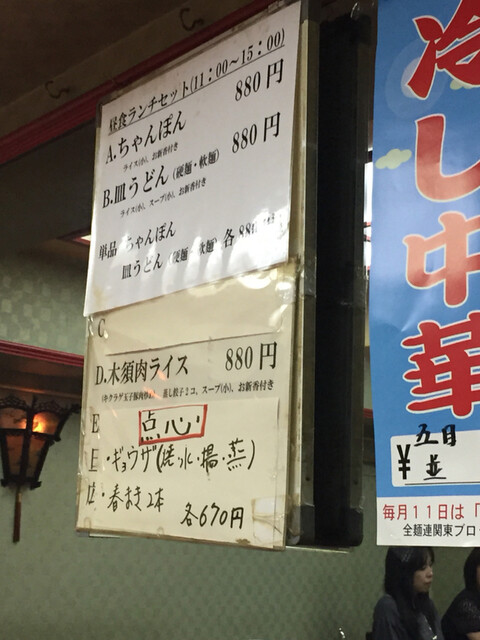 昼食ランチセット(11:00～15:00)
A.ちゃんぽん 880円
ライス(小)、お新香付き
B.皿うどん(硬麺・軟麺) 880円
ライス(小)、スープ(小)、お新香付き
単品 ちゃんぽん
皿うどん(硬麺・軟麺)各 880円
C
D.木須肉ライス 880円
(キクラゲ玉子豚肉炒め)、蒸し餃子2コ、スープ(小)、お新香付き
E 点心
・ギョウザ(焼・水・揚・蒸)
・春まき2本
各670円
冷し中華
五目
¥並
毎月11日は「
全麺連関東ブロッ